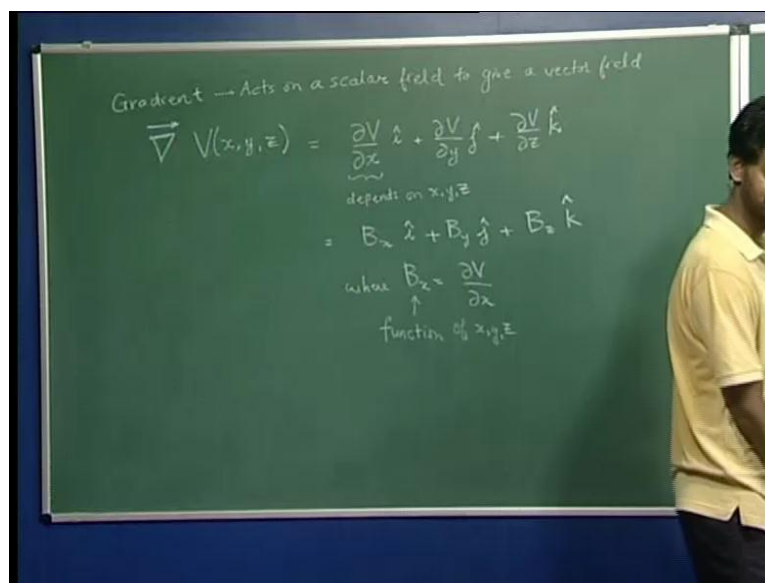 Gradient → Acts on a scalar field to give a vector field
∇⃗ V(x,y,z) = ∂V/∂x î + ∂V/∂y ĵ + ∂V/∂z k̂
depends on x,y,z
= Bₓ î + B_y ĵ + B_z k̂
where Bₓ = ∂V/∂x
↑
function of x,y,z